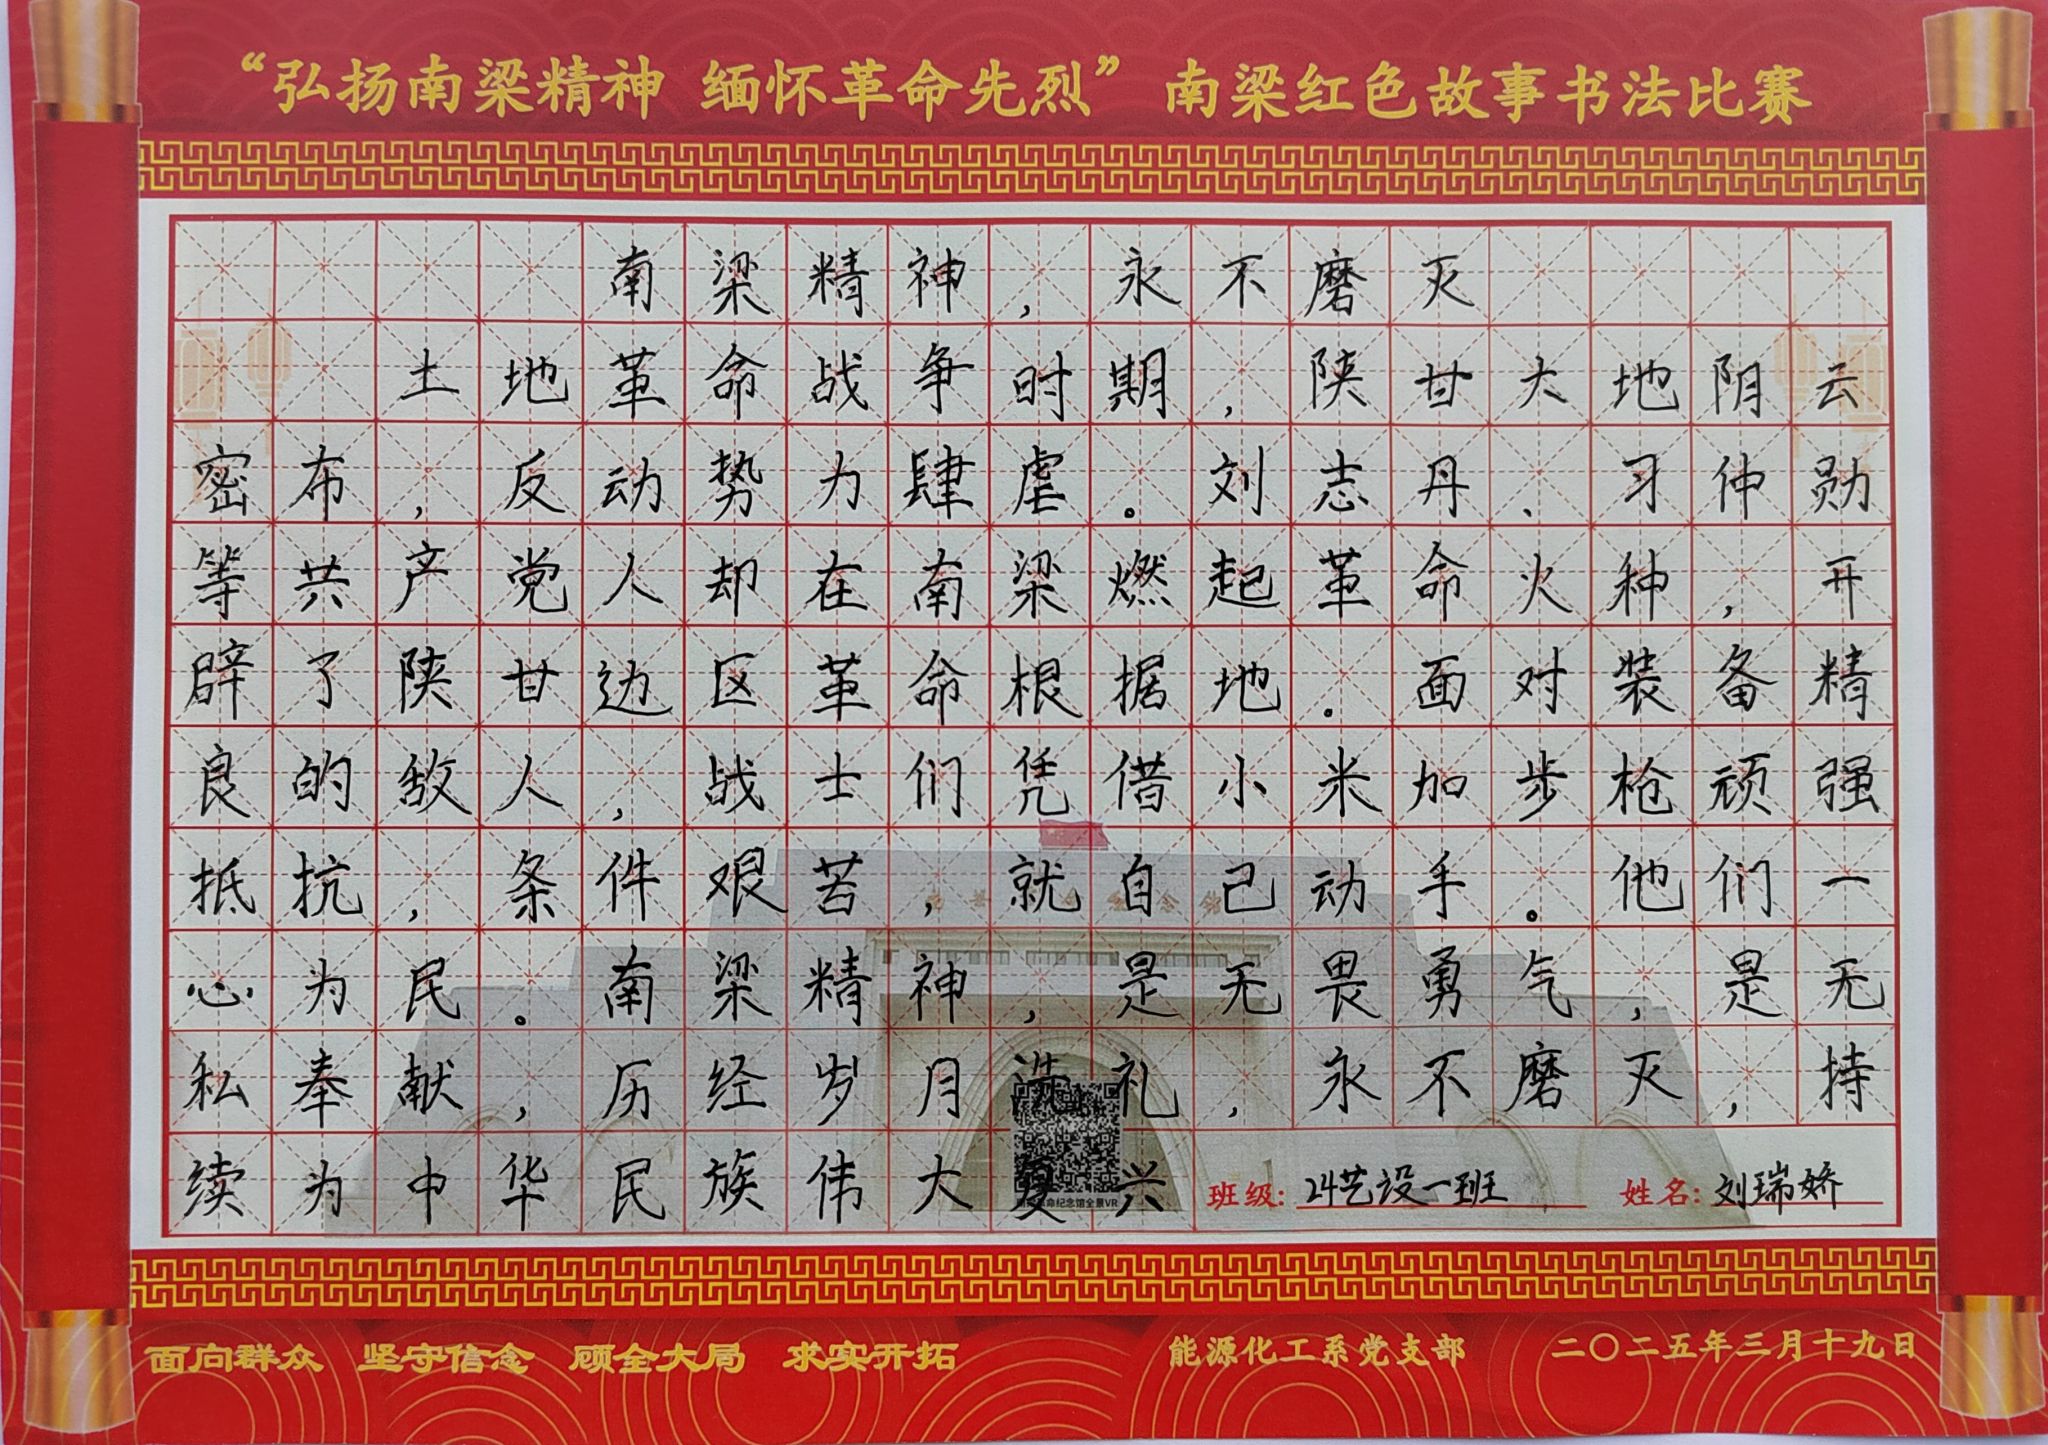 “弘扬南梁精神 缅怀革命先烈” 南梁红色故事书法比赛
南梁精神，永不磨灭
土地革命战争时期，陕甘大地阴云
密布，反动势力肆虐。刘志丹、习仲勋
等共产党人却在南梁燃起革命火种，开
辟了陕甘边区革命根据地。面对装备精
良的敌人，战士们凭借小米加步枪顽强
抵抗，条件艰苦，就自己动手。他们一
心为民。南梁精神，是无畏勇气，是无
私奉献，历经岁月洗礼，永不磨灭，持
续为中华民族伟大复兴
班级: 24艺设一班 姓名: 刘瑞娇
命纪念馆全景VR
面向群众 坚守信念 顾全大局 求实开拓 能源化工系党支部 二〇二五年三月十九日